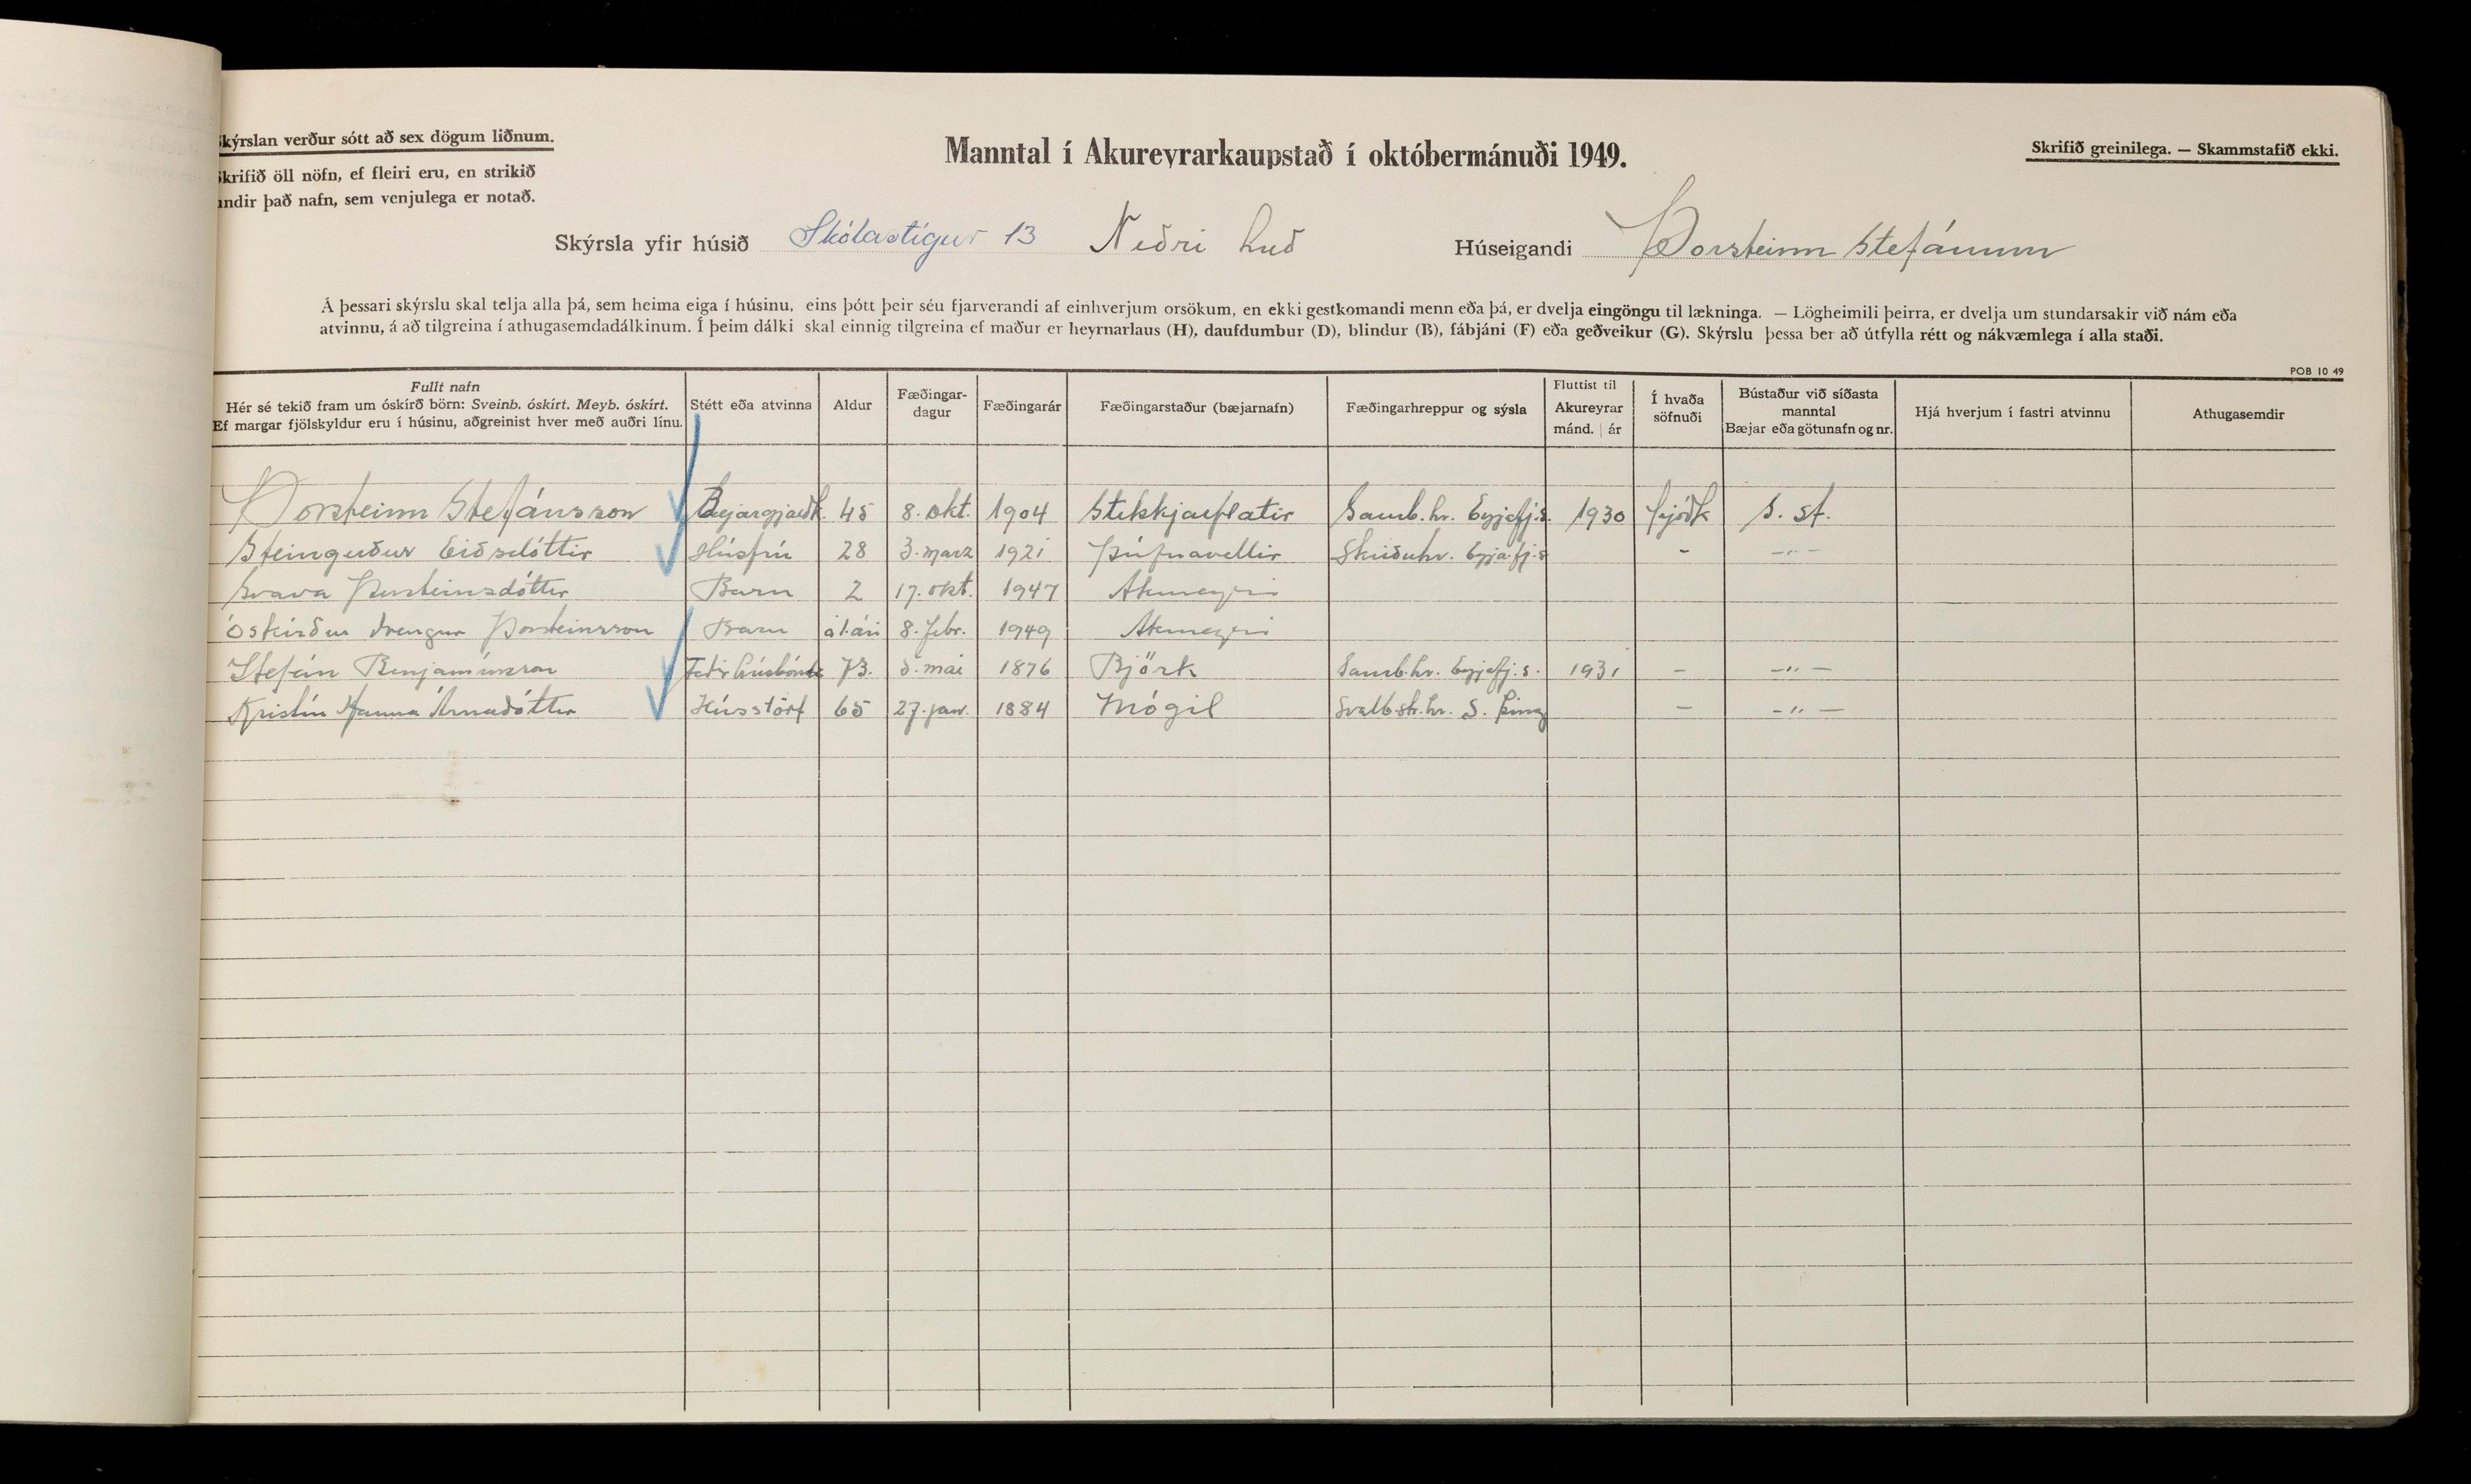 Skýrslan verður sótt að sex dögum liðnum.
Skrifið öll nöfn, ef fleiri eru, en strikið
undir það nafn, sem venjulega er notað.
Manntal í Akureyrarkaupstað í októbermánuði 1949.
Skrifið greinilega. — Skammstafið ekki.
Skýrsla yfir húsið Skólastígur 13 Neðri hæð Húseigandi Þorsteinn Stefánsson
Á þessari skýrslu skal telja alla þá, sem heima eiga í húsinu, eins þótt þeir séu fjarverandi af einhverjum orsökum, en ekki gestkomandi menn eða þá, er dvelja eingöngu til lækninga. — Lögheimili þeirra, er dvelja um stundarsakir við nám eða
atvinnu, á að tilgreina í athugasemdadálkinum. Í þeim dálki skal einnig tilgreina ef maður er heyrnarlaus (H), daufdumbur (D), blindur (B), fábjáni (F) eða geðveikur (G). Skýrslu þessa ber að útfylla rétt og nákvæmlega í alla staði.
POB 10 49
Fullt nafn
Hér sé tekið fram um óskírð börn: Sveinb. óskírt. Meyb. óskírt.
Ef margar fjölskyldur eru í húsinu, aðgreinist hver með auðri línu.
Stétt eða atvinna
Aldur
Fæðingar-
dagur
Fæðingarár
Fæðingarstaður (bæjarnafn)
Fæðingarhreppur og sýsla
Fluttist til
Akureyrar
mánd. | ár
Í hvaða
söfnuði
Bústaður við síðasta
manntal
Bæjar eða götunafn og nr.
Hjá hverjum í fastri atvinnu
Athugasemdir
Þorsteinn Stefánsson Bæjargjaldk. 45 8. okt. 1904 Stekkjarflatir Saurb.hr. Eyjafj.s. 1930 Þjóðk S. st.
Steingerður Eiðsdóttir Húsfrú 28 3. marz 1921 Þúfnavellir Skriðuhr. Eyjafj.s - -"-
Svava Þorsteinsdóttir Barn 2 17. okt. 1947 Akureyri
Óskírður drengur Þorsteinsson Barn á 1. ári 8. febr. 1949 Akureyri
Stefán Benjamínsson Faðir húsbónda 73. 5. maí 1876 Björk Saurb.hr. Eyjafj.s. 1931 - -"-
Kristín Hanna Árnadóttir Hússtörf 65 27. jan. 1884 Mógil Svalb.str.hr. S. Þing - -"-